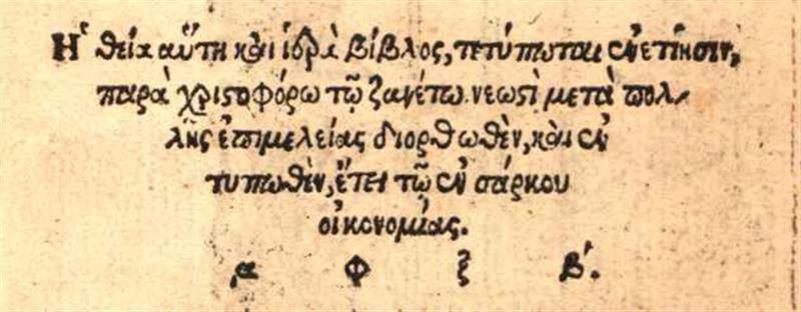 Ἡ θεία αὕτη καὶ ἱερὰ βίβλος, τετύπωται ἐνετίησιν,
παρὰ χριστοφόρω τῷ ζανέτω. νεωστὶ μετὰ πολ-
λῆς ἐπιμελείας διορθωθὲν, καὶ ἐν
τυπωθὲν, ἔτει τῷ ἐν σάρκου
οἰκονομίας.
͵α φ ξ β΄.